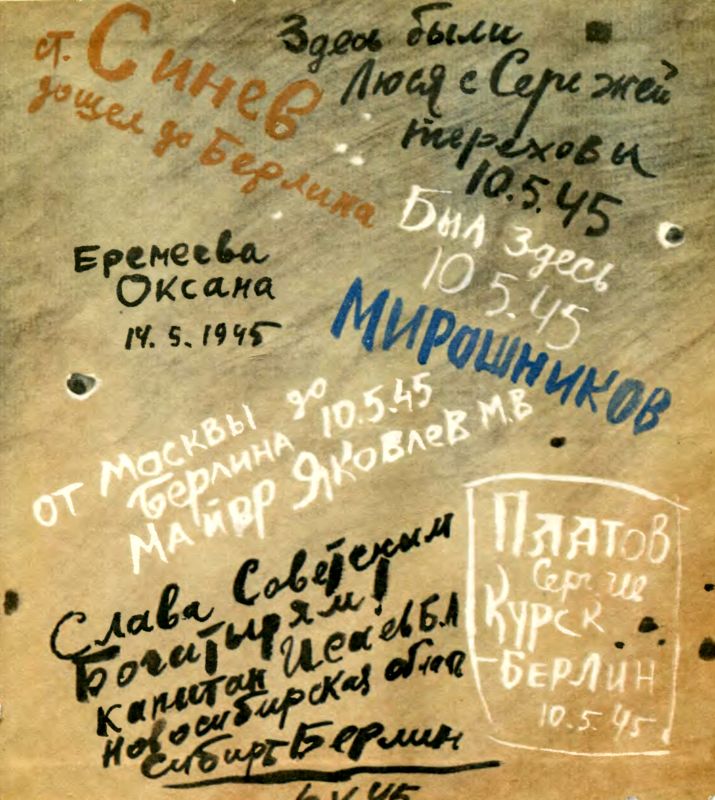 ст. Синев
дошел до Берлина
Здесь были
Люся с Сережей
Тереховы
10.5.45
Был здесь
10 5.45
Мирошников
Еремеева
Оксана
14. 5. 1945
от Москвы до
Берлина 10.5.45
майор Яковлев М.В
Слава Советским
Богатырям!
капитан Исаев Б.А
Новосибирская
Сибирь Берлин
Платов
Курск
-Берлин
10.5.45